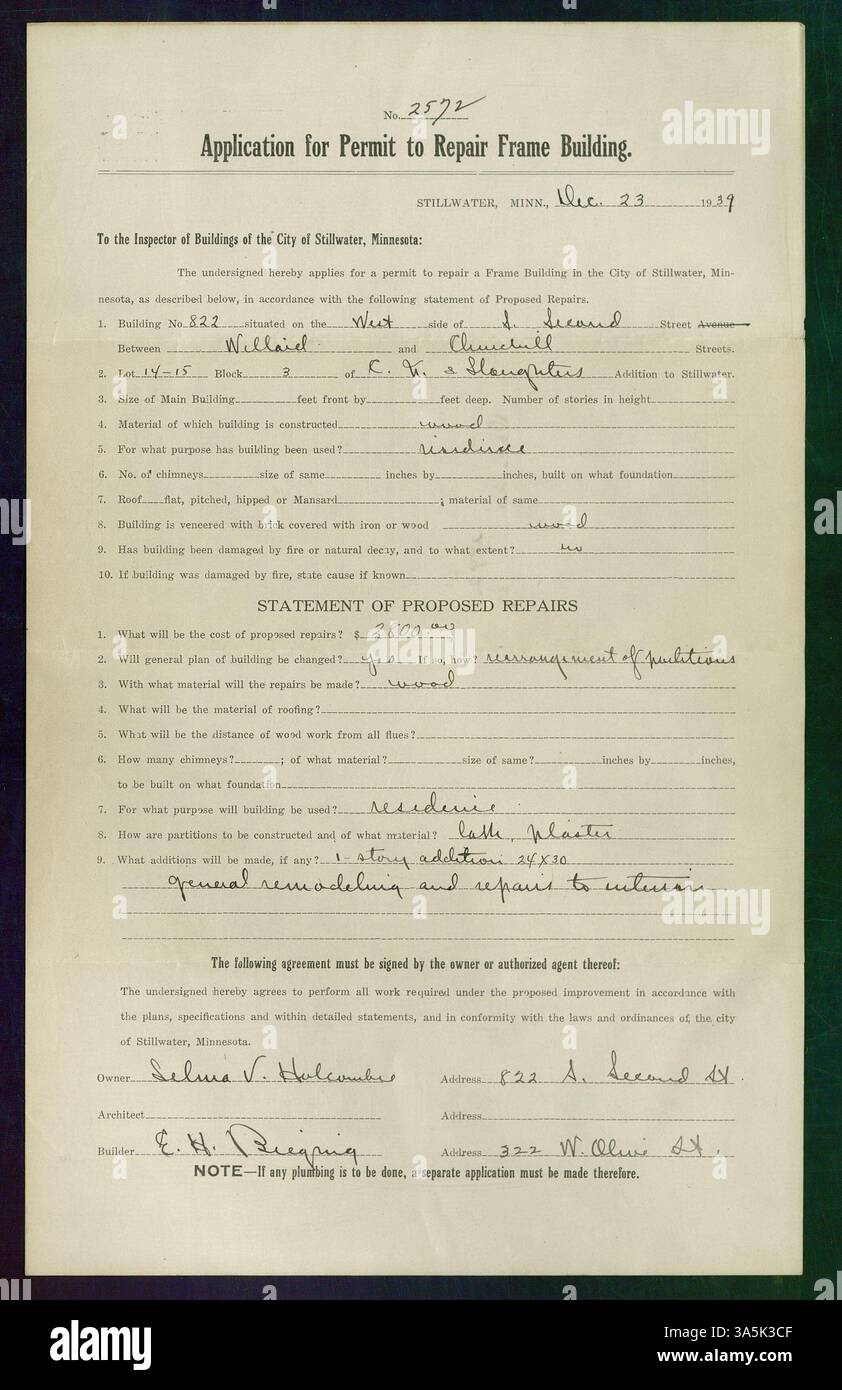 No. 2572
Application for Permit to Repair Frame Building.
STILLWATER, MINN., Dec. 23 1939
To the Inspector of Buildings of the City of Stillwater, Minnesota:
The undersigned hereby applies for a permit to repair a Frame Building in the City of Stillwater, Min-
nesota, as described below, in accordance with the following statement of Proposed Repairs.
1. Building No. 822 situated on the West side of S. Second Street Avenue
Between Willard and Churchill Streets.
2. Lot 14-15 Block 3 of Slaughters Addition to Stillwater.
3. Size of Main Building feet front by feet deep. Number of stories in height
4. Material of which building is constructed wood
5. For what purpose has building been used? residence
6. No. of chimneys size of same inches by inches, built on what foundation
7. Roof flat, pitched, hipped or Mansard ; material of same
8. Building is veneered with brick covered with iron or wood wood
9. Has building been damaged by fire or natural decay, and to what extent? no
10. If building was damaged by fire, state cause if known
STATEMENT OF PROPOSED REPAIRS
1. What will be the cost of proposed repairs? $ 2800.00
2. Will general plan of building be changed? yes If so, how? rearrangement of partitions
3. With what material will the repairs be made? wood
4. What will be the material of roofing?
5. What will be the distance of wood work from all flues?
6. How many chimneys? ; of what material? size of same? inches by inches,
to be built on what foundation
7. For what purpose will building be used? residence
8. How are partitions to be constructed and of what material? lath, plaster
9. What additions will be made, if any? 1-story addition 24X30
general remodeling and repairs to interior
The following agreement must be signed by the owner or authorized agent thereof:
The undersigned hereby agrees to perform all work required under the proposed improvement in accordance with
the plans, specifications and within detailed statements, and in conformity with the laws and ordinances of the city
of Stillwater, Minnesota.
Owner Selma V. Holcombe Address 822 S. Second St.
Architect Address
Builder E. H. Address 322 W. Olive St.
NOTE—If any plumbing is to be done, a separate application must be made therefore.
alamy
Image ID: 3A5K3CF
www.alamy.com